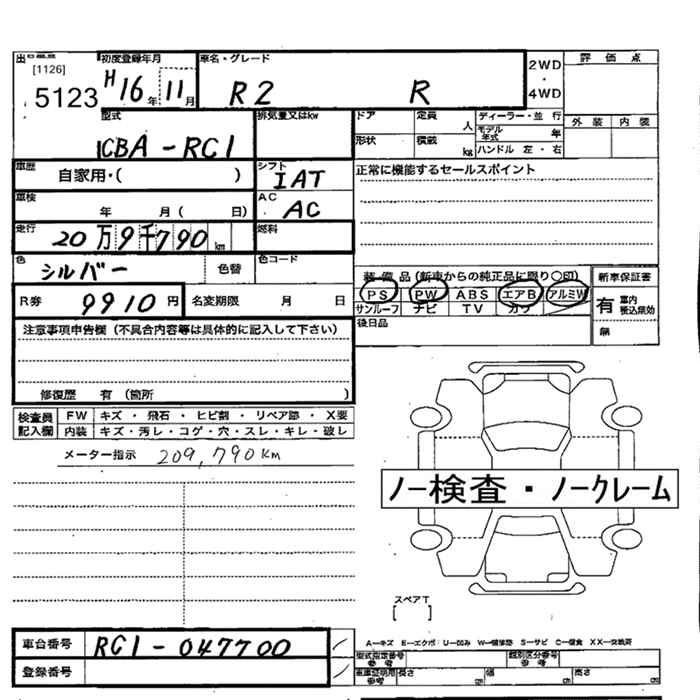 初度登録年月 車名・グレード 評価点
[1126]
5123 H16年 11月 R2 R 2WD・4WD
型式 排気量又はkw ドア 定員 人 ディーラー・並行 外装 内装
CBA-RC1 形状 積載 kg モデル年式 年
ハンドル 左・右
車歴 シフト 正常に機能するセールスポイント
自家用・( ) IAT
車検 年 月( 日) AC AC
走行 20万9千790km 燃料
色 シルバー 色替 色コード
装備品(新車からの純正品に限り○印) 新車保証書
PS PW ABS エアB アルミW 有 車内 後込無効
サンルーフ ナビ TV カワ 無
R券 9910円 名変期限 月 日
後日品
注意事項申告欄(不具合内容等は具体的に記入して下さい)
修復歴 有(箇所 )
検査員記入欄 FW キズ・飛石・ヒビ割・リペア跡・X要
内装 キズ・汚レ・コゲ・穴・スレ・キレ・破レ
メーター指示 209,790km
ノー検査・ノークレーム
スペアT
[ ]
A−キズ E−エクボ U−凹み W−補修跡 S−サビ C−腐食 XX−交換済
車台番号 RC1-047700
型式指定番号 参考 類別区分番号 参考
登録番号
車庫証明用 参考 長さ cm 幅 cm 高さ cm